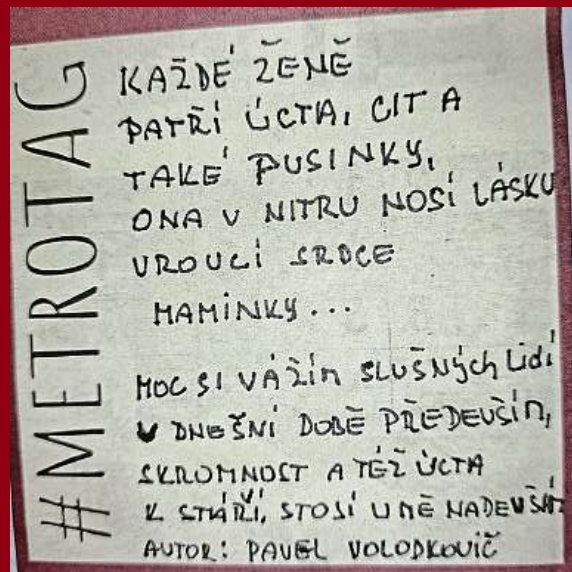 #METROTAG
KAŽDÉ ŽENĚ
PATŘÍ ÚCTA, CIT A
TAKÉ PUSINKY,
ONA V NITRU NOSÍ LÁSKU
VROUCÍ SRDCE
MAMINKY...
MOC SI VÁŽÍM SLUŠNÝCH LIDÍ
V DNEŠNÍ DOBĚ PŘEDEVŠÍM,
SKROMNOST A TÉŽ ÚCTA
K STÁŘÍ, STOJÍ U MĚ NADEVŠÍM
AUTOR: PAVEL VOLODKOVIČ